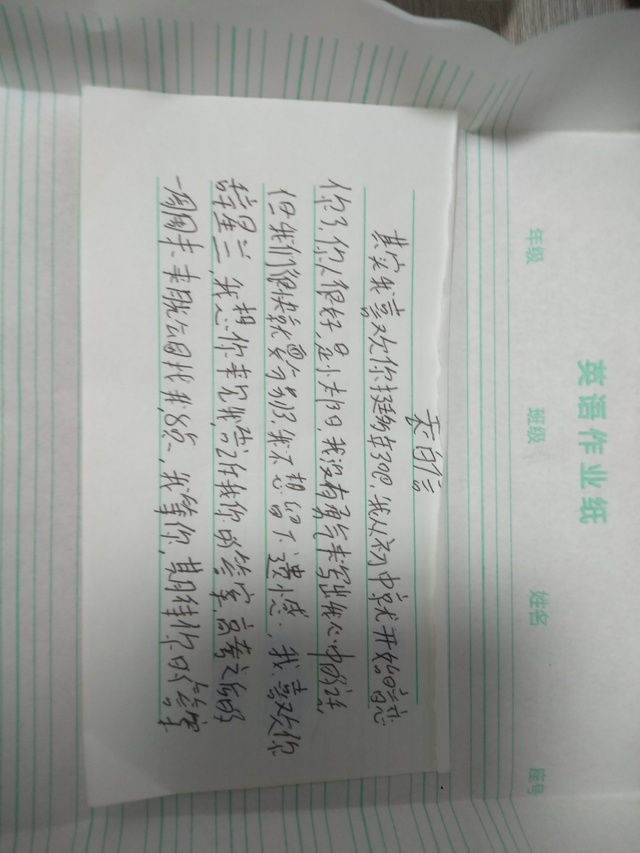 英语作业纸
年级 班级 姓名 座号
表白信
其实我喜欢你挺多年了吧,我从初中就开始暗恋
你了,你人很好,是小太阳,我没有勇气来写出我心中的话,
但我们很快就要分别了,我不想留下遗憾,我喜欢你
我想你来见我,告诉我你的答案,高考之后的
一周周末,来 公园找我,8点,我等你,期待你的答案